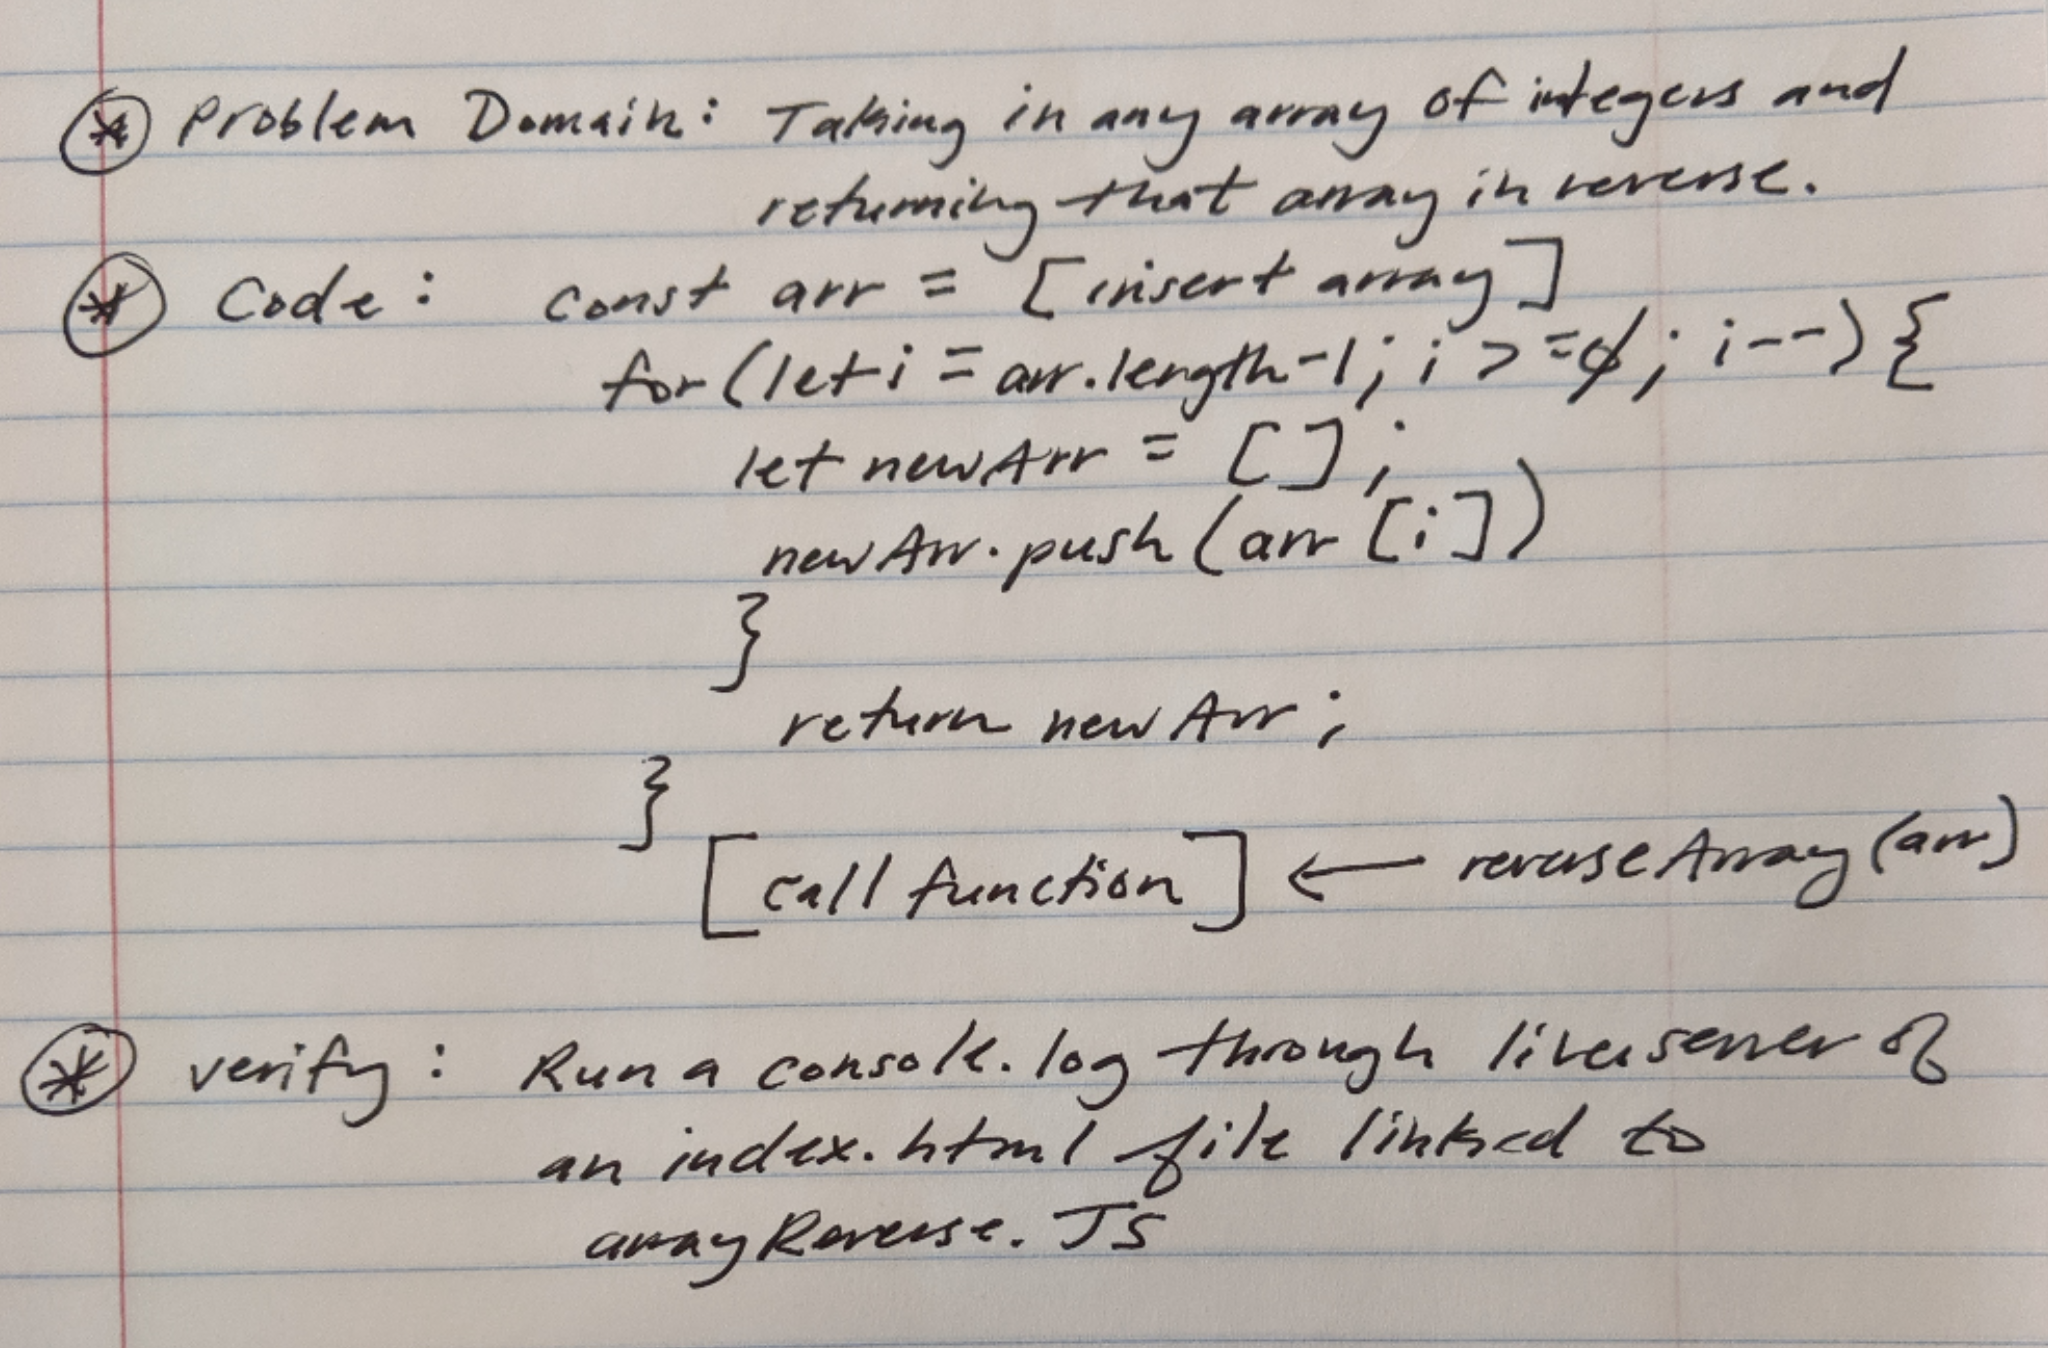 * Problem Domain: Taking in any array of integers and
returning that array in reverse.
* Code: const arr = [insert array]
for (let i = arr.length-1; i >=0; i--) {
let newArr = [];
newArr.push(arr[i])
}
return newArr;
}
[call function] ← reverseArray(arr)
* verify: Run a console.log through liveserver of
an index.html file linked to
arrayReverse.JS